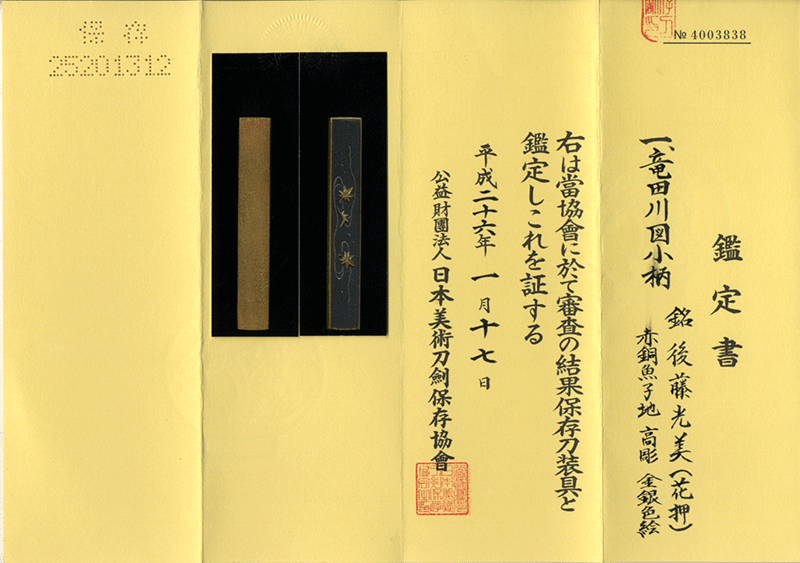 № 4003838
鑑定書
一、竜田川図小柄
銘 後藤光美(花押)
赤銅魚子地 高彫 金銀色絵
右は當協會に於て審査の結果保存刀装具と
鑑定しこれを証する
平成二十六年 一月十七日
公益財團法人 日本美術刀劍保存協會
保存
25201312